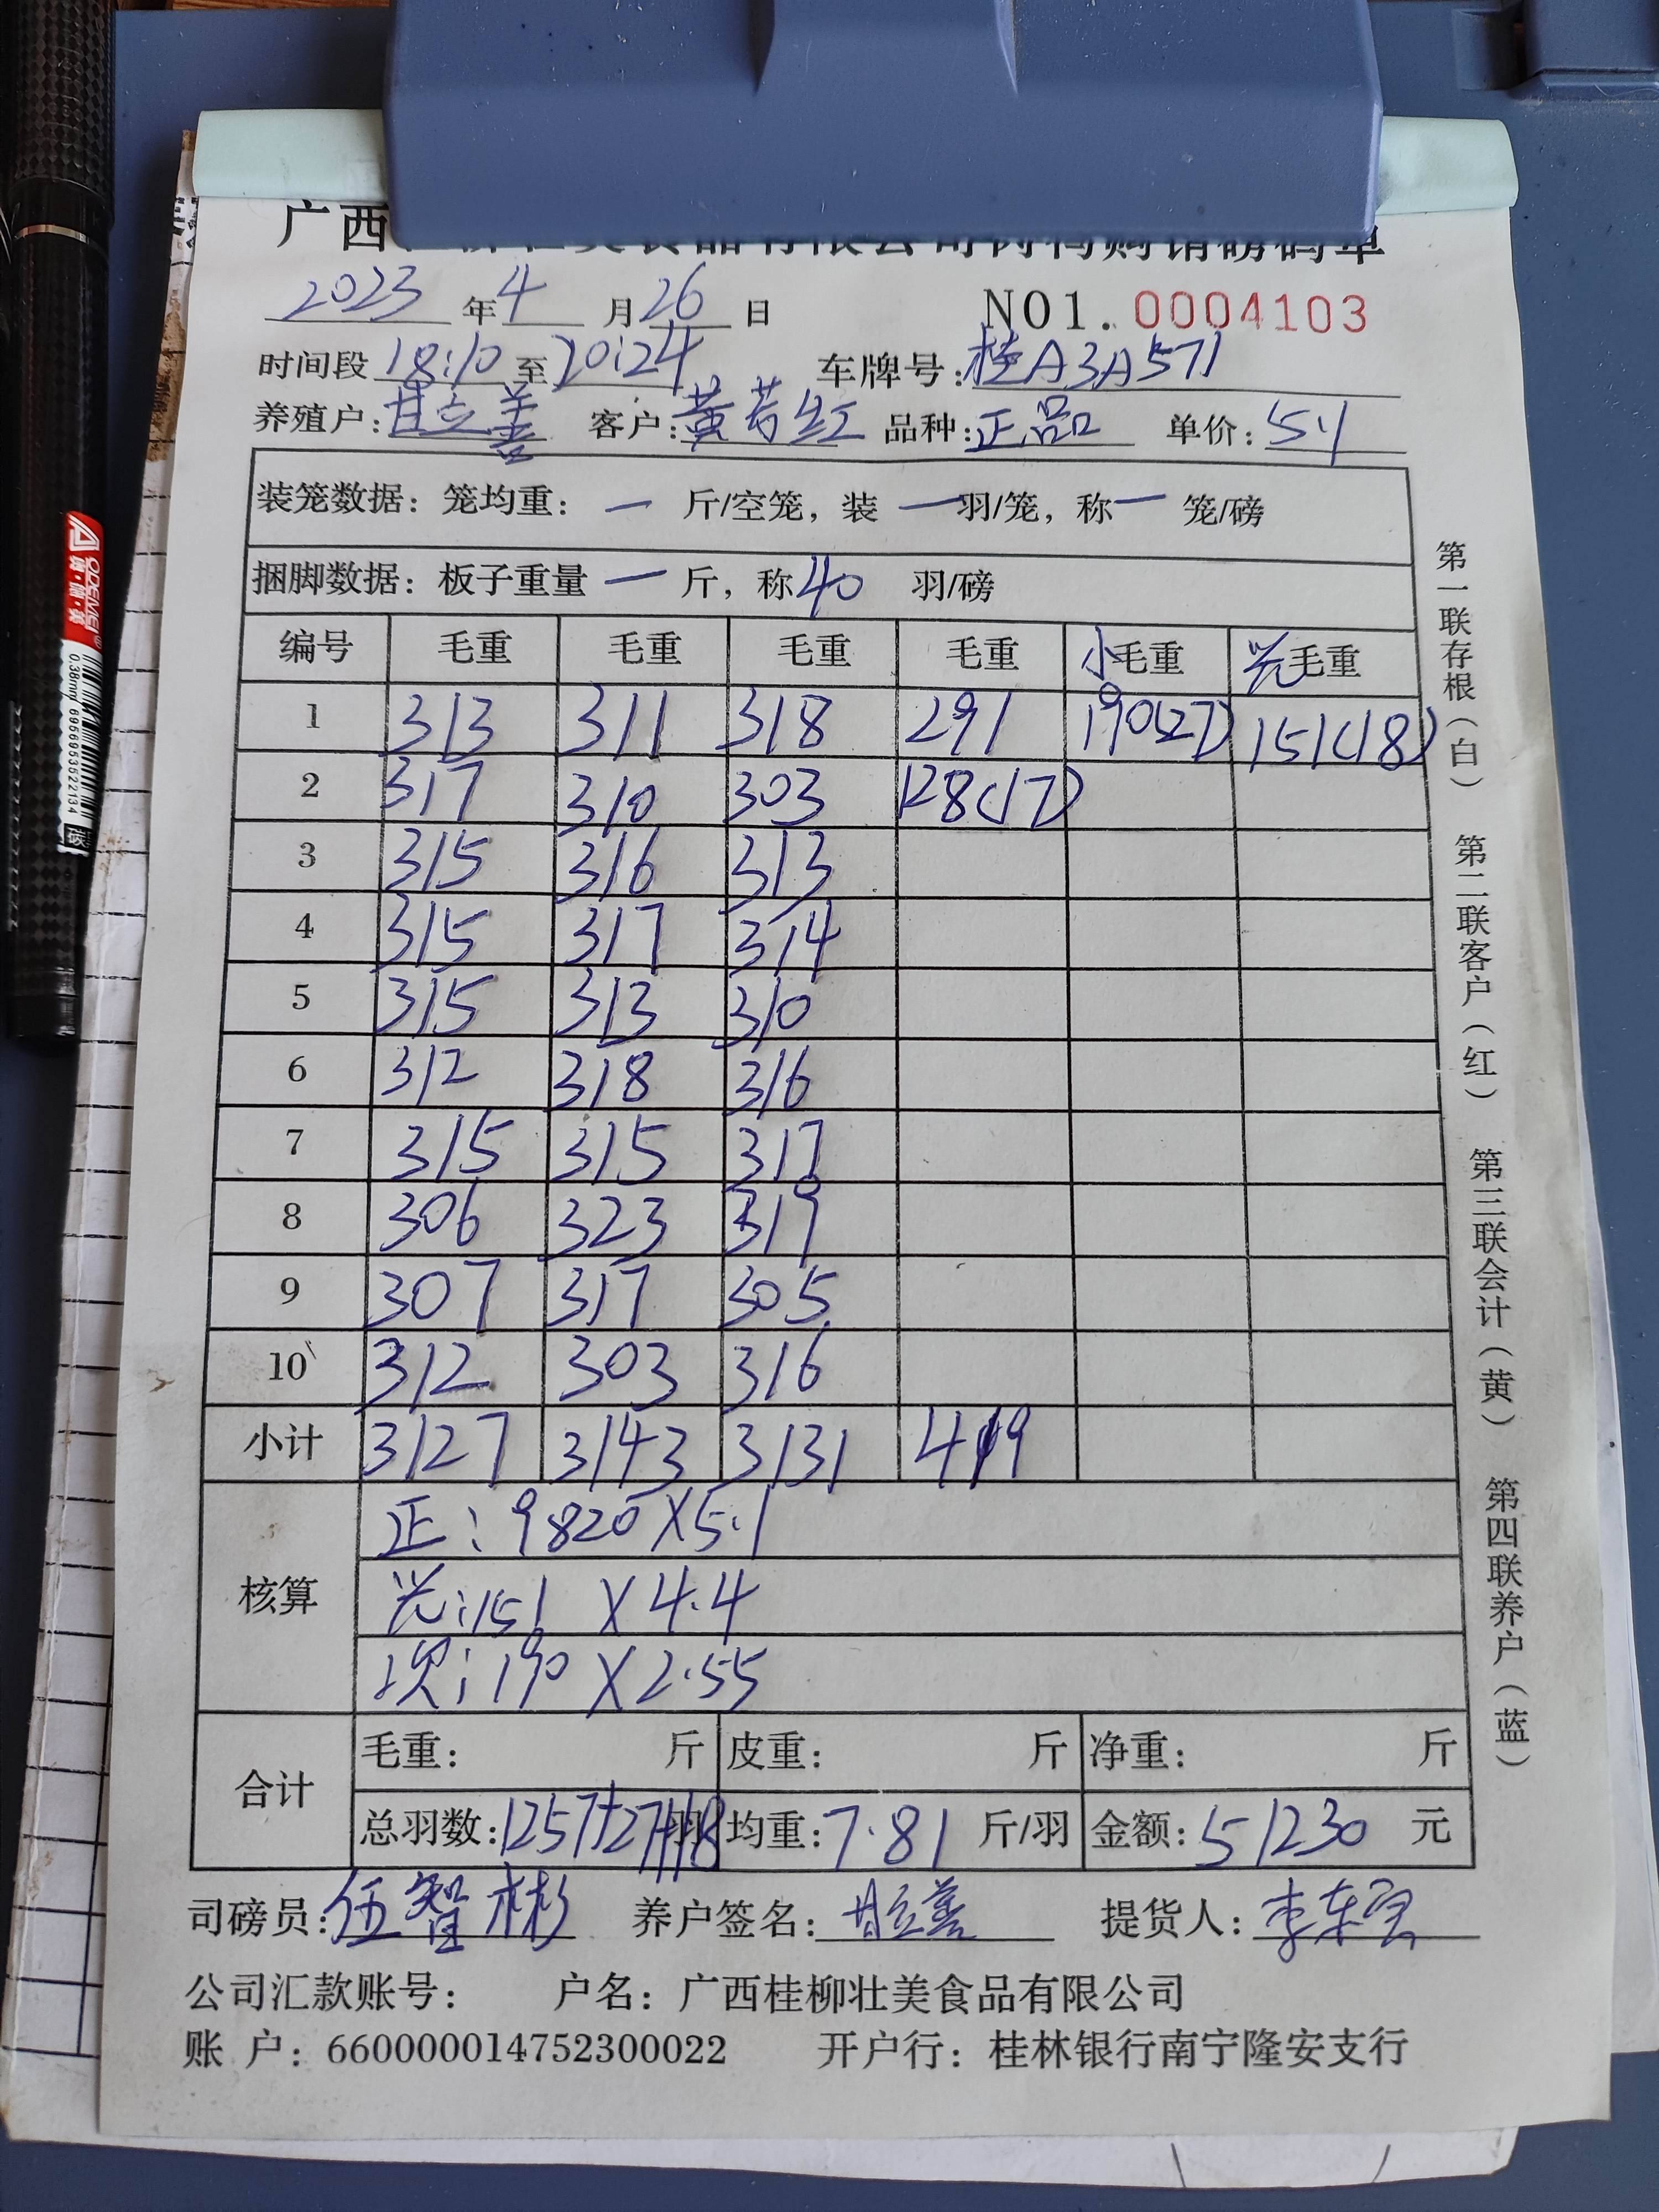 2023 年 4 月 26 日 NO1. 0004103
时间段 18:10 至 20:24 车牌号: 桂A3A571
养殖户: 甘立善 客户: 黄若红 品种: 正品 单价: 5.1
装笼数据: 笼均重: 一 斤/空笼, 装 一 羽/笼, 称 一 笼/磅
捆脚数据: 板子重量 一 斤, 称 40 羽/磅
编号 毛重 毛重 毛重 毛重 小毛重 光毛重
1 313 311 318 291 190(27) 151(18)
2 317 310 303 128(17)
3 315 316 313
4 315 317 314
5 315 313 310
6 312 318 316
7 315 315 317
8 306 323 319
9 307 317 305
10 312 303 316
小计 3127 3143 3131 419
核算
正: 9820 X 5.1
光: 151 X 4.4
次: 190 X 2.55
合计
毛重: 斤 皮重: 斤 净重: 斤
总羽数: 1257+27+18 羽 均重: 7.81 斤/羽 金额: 51230 元
司磅员: 伍智彬 养户签名: 甘立善 提货人:
公司汇款账号: 户名: 广西桂柳壮美食品有限公司
账 户: 660000014752300022 开户行: 桂林银行南宁隆安支行
第一联存根(白) 第二联客户(红) 第三联会计(黄) 第四联养户(蓝)
QDEMEI
0.38mm
6956953522134
碳